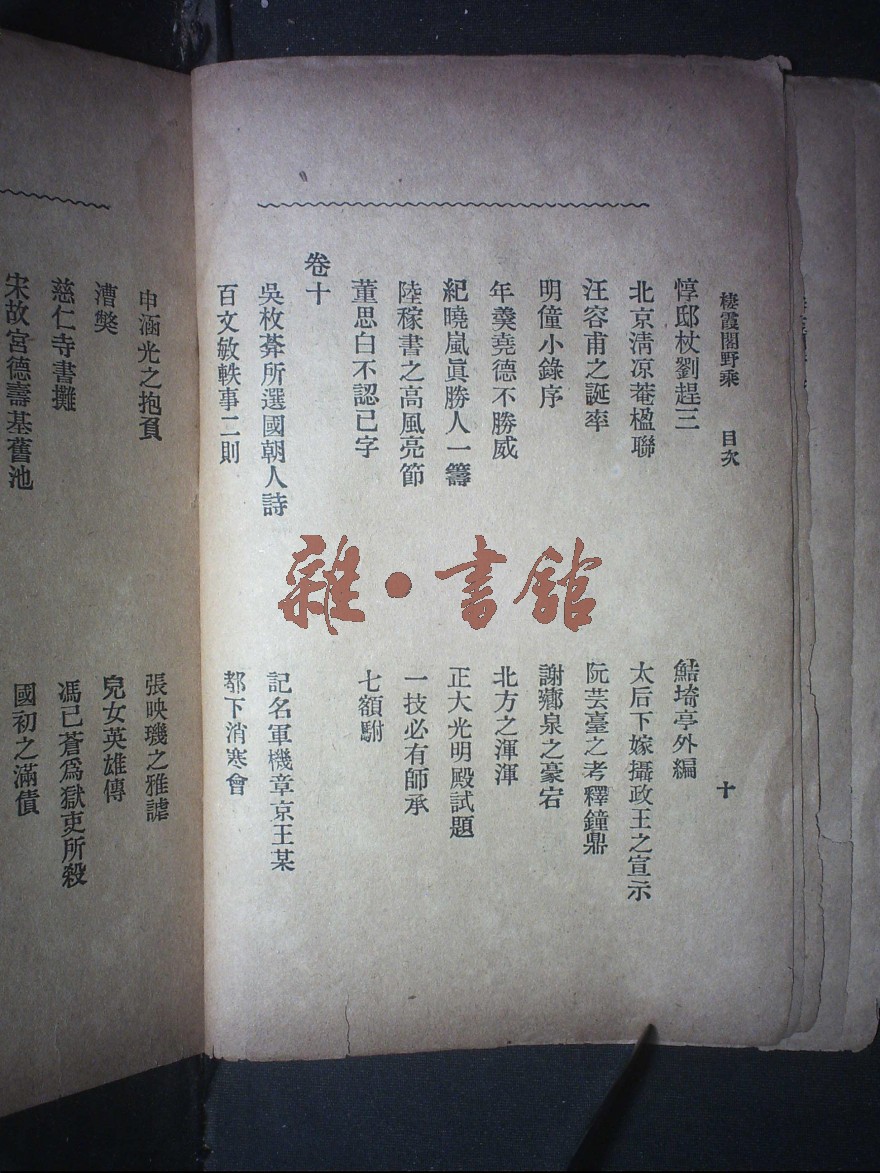 棲霞閣野乘　目次　十
惇邸杖劉趕三
鮚埼亭外編
北京清凉菴楹聯
太后下嫁攝政王之宣示
汪容甫之誕率
阮芸臺之考釋鐘鼎
明僮小錄序
謝薌泉之豪宕
年羹堯德不勝威
北方之渾渾
紀曉嵐眞勝人一籌
正大光明殿試題
陸稼書之高風亮節
一技必有師承
董思白不認己字
七額駙
卷十
吳枚菴所選國朝人詩
記名軍機章京王某
百文敏軼事二則
都下消寒會
申涵光之抱負
張映璣之雅謔
漕獘
兒女英雄傳
慈仁寺書攤
馮已蒼爲獄吏所殺
宋故宮德壽基舊池
國初之滿債
雜·書館